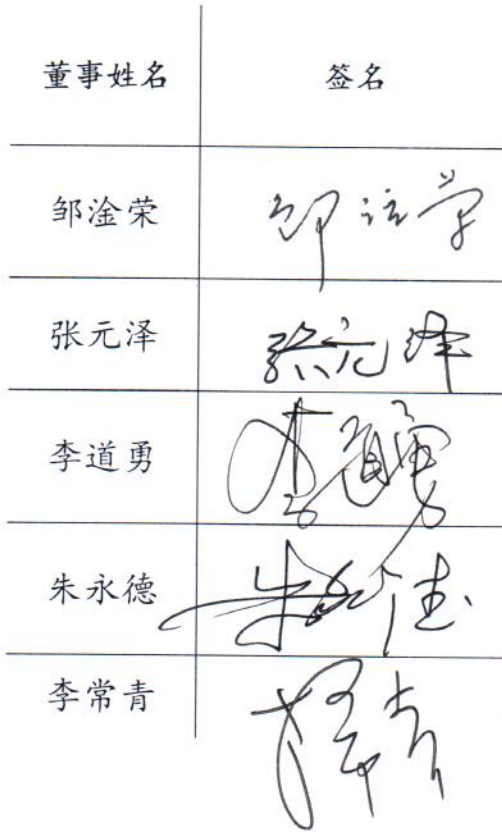 董事姓名 签名
邹淦荣 邹淦荣
张元泽 张元泽
李道勇 李道勇
朱永德 朱永德
李常青 李常青